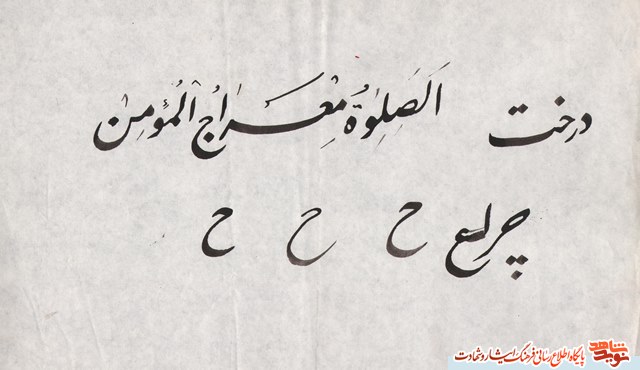 درخت اَلصَّلوٰةُ مِعْرَاجُ الْمُؤْمِنْ
چراغ ح ح ح
نوید شاهد پایگاه اطلاع رسانی فرهنگ ایثار و شهادت